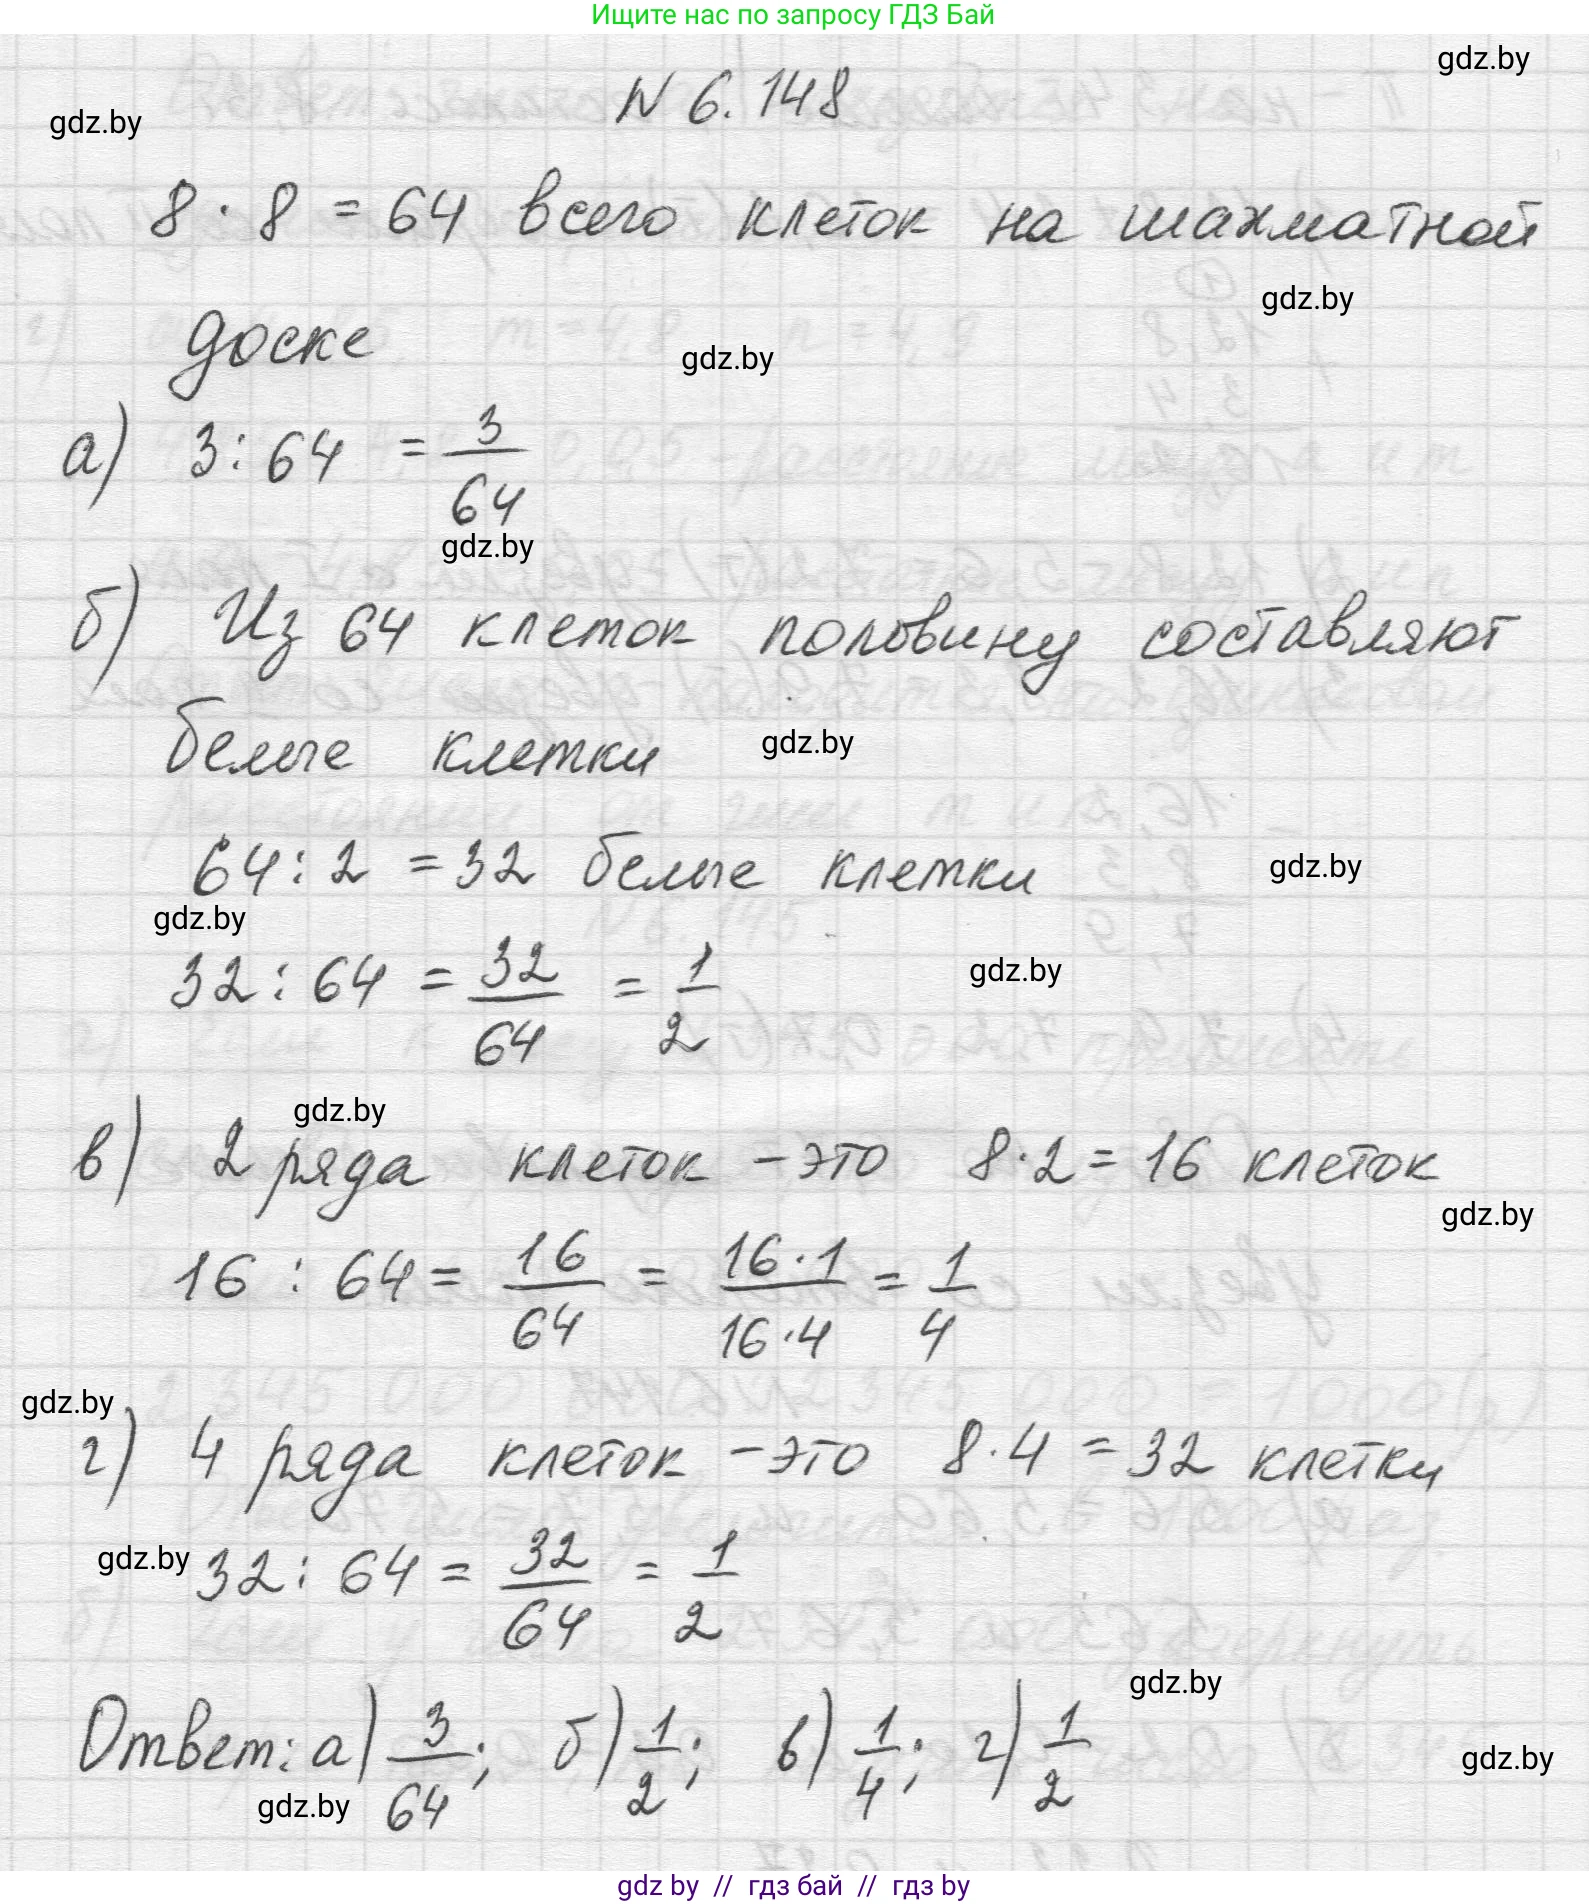 Ищите нас по запросу ГДЗ Бай
gdz.by
N 6.148
gdz.by
8 · 8 = 64 всего клеток на шахматной
gdz.by
доске
gdz.by
а) 3 : 64 = 3/64
gdz.by
б) Из 64 клеток половину составляют
белые клетки
gdz.by
64 : 2 = 32 белые клетки
gdz.by
gdz.by
32 : 64 = 32/64 = 1/2
gdz.by
gdz.by
в) 2 ряда клеток - это 8 · 2 = 16 клеток
gdz.by
16 : 64 = 16/64 = 16·1/16·4 = 1/4
gdz.by
г) 4 ряда клеток - это 8 · 4 = 32 клетки
gdz.by
32 : 64 = 32/64 = 1/2
gdz.by
Ответ: а) 3/64; б) 1/2; в) 1/4; г) 1/2
gdz.by
gdz.by
gdz by // гдз бай // гдз by